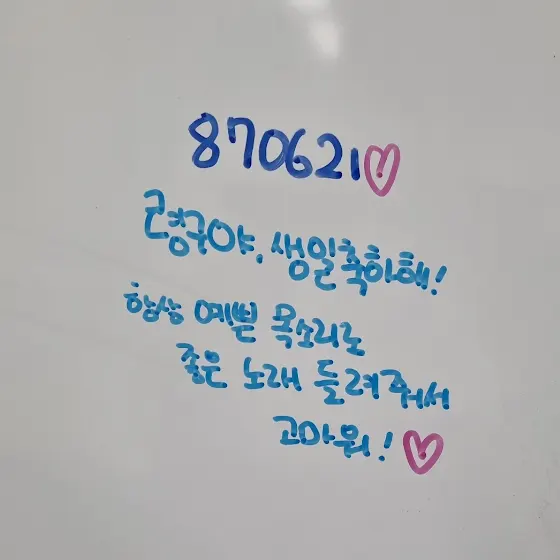 870621♡
령구야, 생일축하해!
항상 예쁜 목소리로
좋은 노래 들려줘서
고마워! ♡